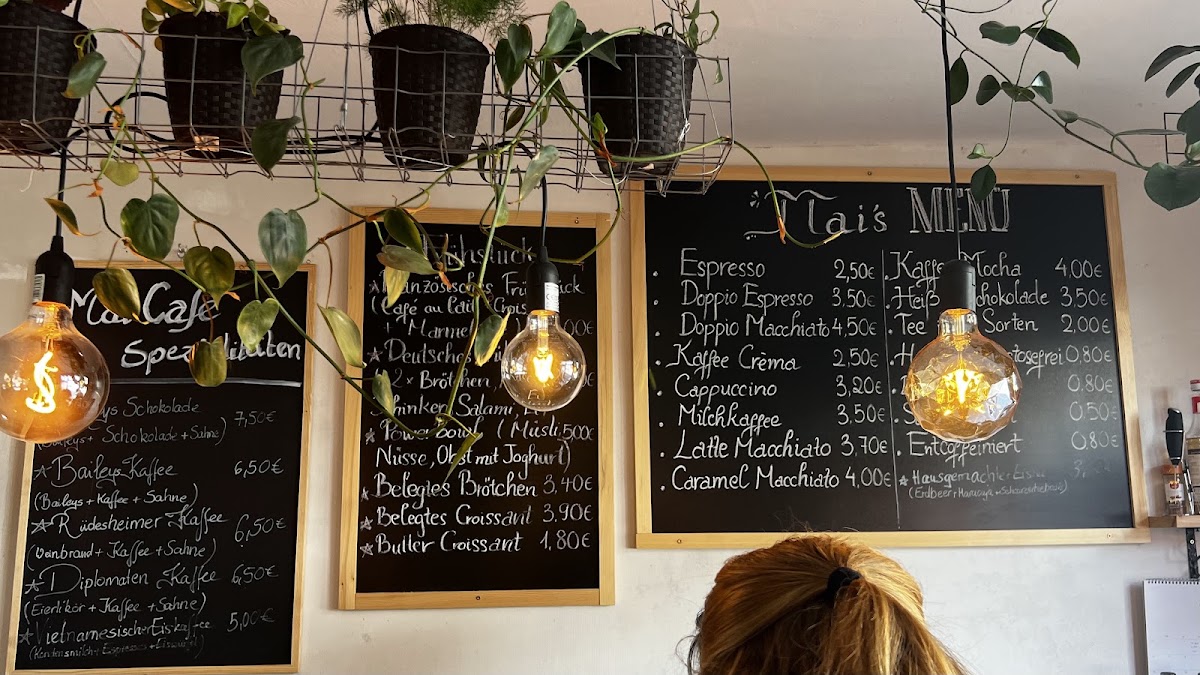 Mai Café
Spezialitäten
Schokolade 7,50€
+ Schokolade + Sahne)
Baileys Kaffee 6,50€
(Baileys + Kaffee + Sahne)
Rüdesheimer Kaffee 6,50€
(Weinbrand + Kaffee + Sahne)
Diplomaten Kaffee 6,50€
(Eierlikör + Kaffee + Sahne)
Vietnamesischer Eiskaffee 5,00€
(Kondensmilch + Espresso + Eiswürfel)
Frühstück
Französisches
(Café au Lait
+
Deutsches
2x Brötchen,
Schinken Salami,
Powerbowl (Müsli 5,00€
Nüsse, Obst mit Joghurt)
Belegtes Brötchen 3,40€
Belegtes Croissant 3,90€
Butter Croissant 1,80€
Mai's MENÜ
Espresso 2,50€
Doppio Espresso 3,50€
Doppio Macchiato 4,50€
Kaffee Crèma 2,50€
Cappuccino 3,20€
Milchkaffee 3,50€
Latte Macchiato 3,70€
Caramel Macchiato 4,00€
Kaffee Mocha 4,00€
Heiß Schokolade 3,50€
Tee Sorten 2,00€
0,80€
0,80€
0,50€
Entcoffeiniert 0,80€
Hausgemachter
(Erdbeer +